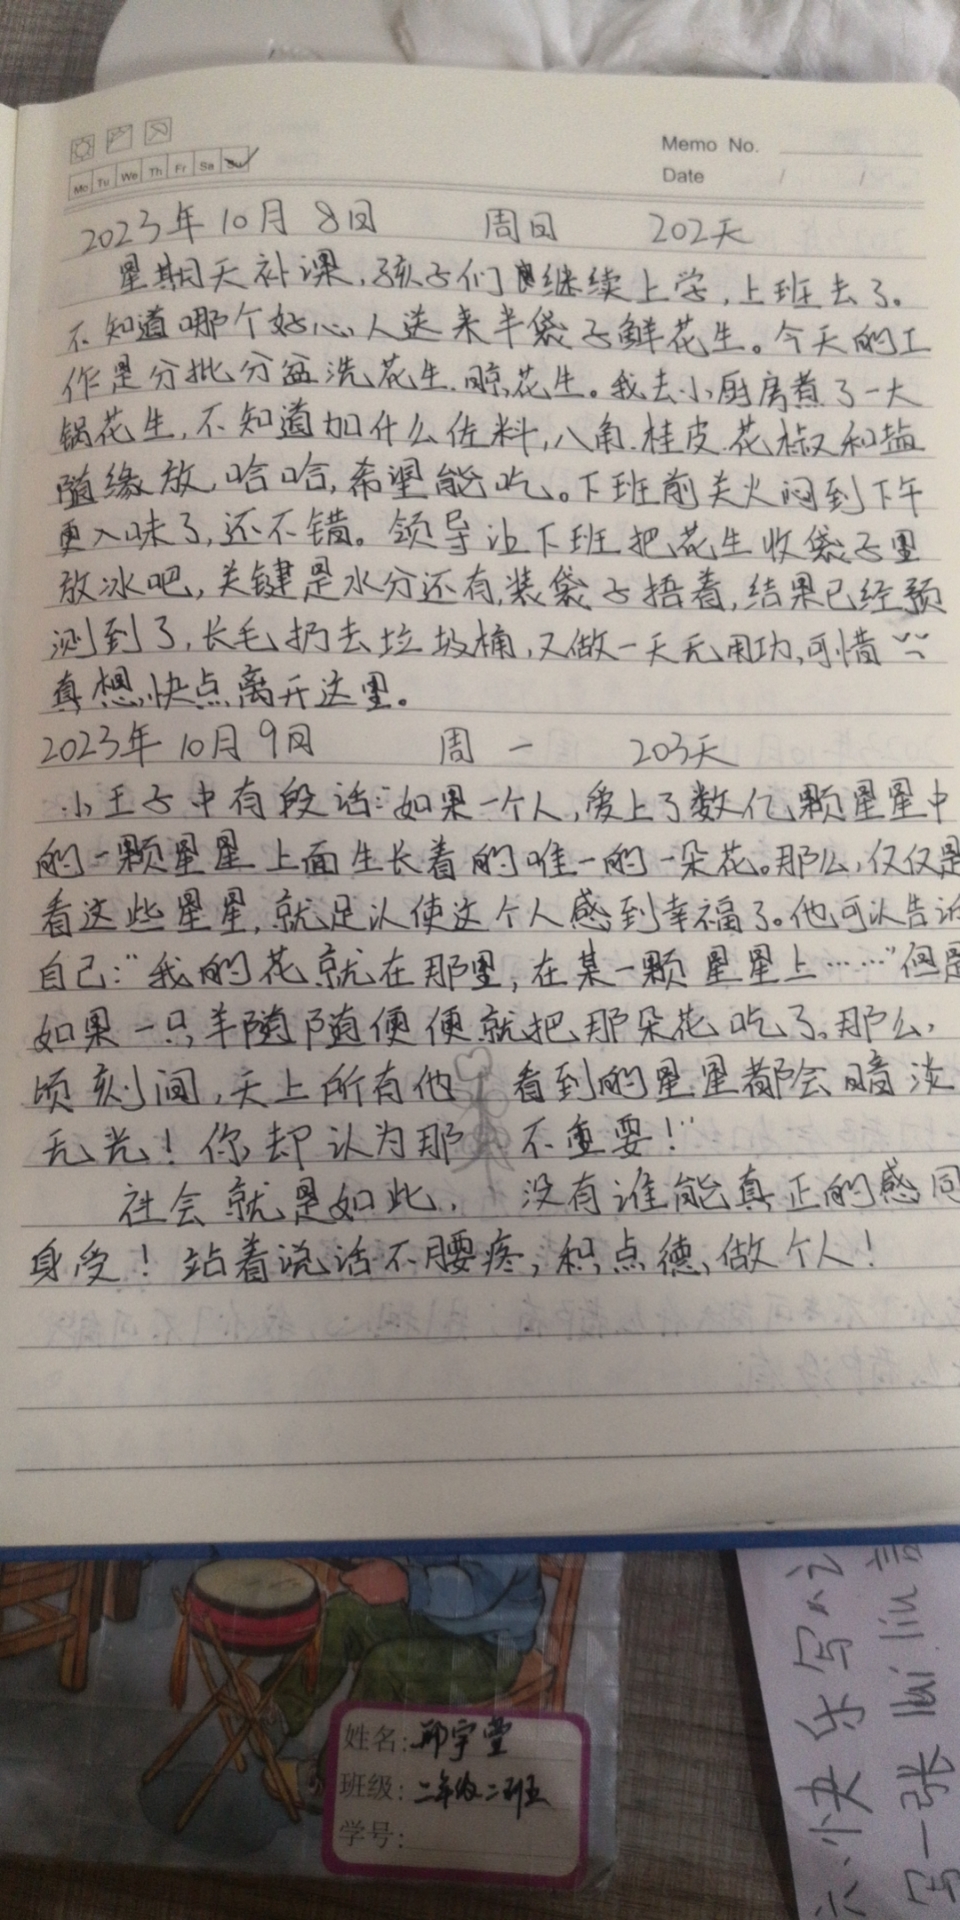 Memo No.
Mo Tu We Th Fr Sa Su
Date / /
2023年10月8日 周日 202天
星期天补课,孩子们继续上学,上班去了。
不知道哪个好心人送来半袋子鲜花生。今天的工
作是分批分盆洗花生.晾花生。我去小厨房煮了一大
锅花生,不知道加什么佐料,八角.桂皮.花椒和盐
随缘放,哈哈,希望能吃。下班前关火闷到下午
更入味了,还不错。领导让下班把花生收袋子里
放冰吧,关键是水分还有,装袋子捂着,结果已经预
测到了,长毛扔去垃圾桶,又做一天无用功,可惜
真想快点离开这里。
2023年10月9日 周一 203天
小王子中有段话:"如果一个人,爱上了数亿颗星星中
的一颗星星上面生长着的唯一的一朵花。那么,仅仅是
看这些星星,就足认使这个人感到幸福了。他可认告诉
自己:"我的花就在那里,在某一颗星星上……"但是
如果一只羊随随便便就把那朵花吃了。那么,
顷刻间,天上所有他看到的星星都会暗淡
无光!你却认为那不重要!"
社会就是如此,没有谁能真正的感同
身受!站着说话不腰疼,积点德,做个人!
姓名:
班级:二年级二班
学号:
快乐写
写一张 liu